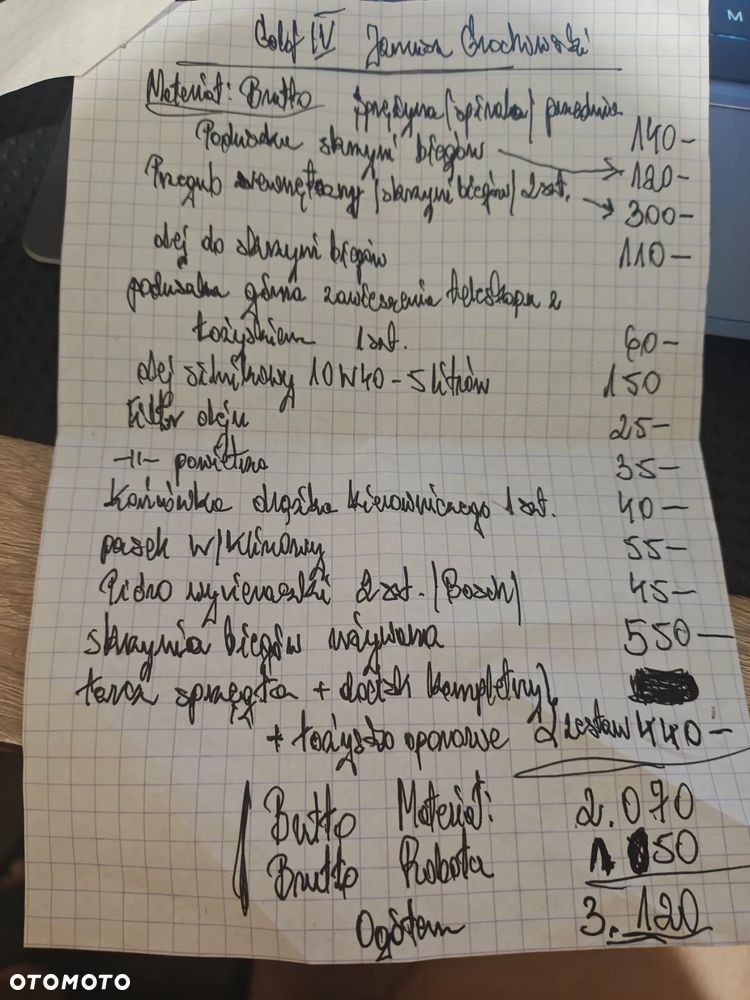 M
Golf IV Janusz Grochowski
Materiał: Brutto Sprężyna (spirala) przednia 140-
Poduszka skrzyni biegów 120-
Przegub zewnętrzny (skrzyni biegów) 2szt. 300-
olej do skrzyni biegów 110-
poduszka górna zawieszenia teleskopu z
łożyskiem 1szt. 60-
olej silnikowy 10W40 - 5 litrów 150
Filtr oleju 25-
-II- powietrza 35-
końcówka drążka kierowniczego 1szt. 40-
pasek W/Klinowy 55-
Pióro wycieraczki 2szt. (Bosch) 45-
skrzynia biegów używana 550-
tarcza sprzęgła + docisk kompletny
+ łożysko oporowe zestaw 440-
Brutto Materiał: 2.070
Brutto Robota 1 050
Ogółem 3.120
OTOMOTO